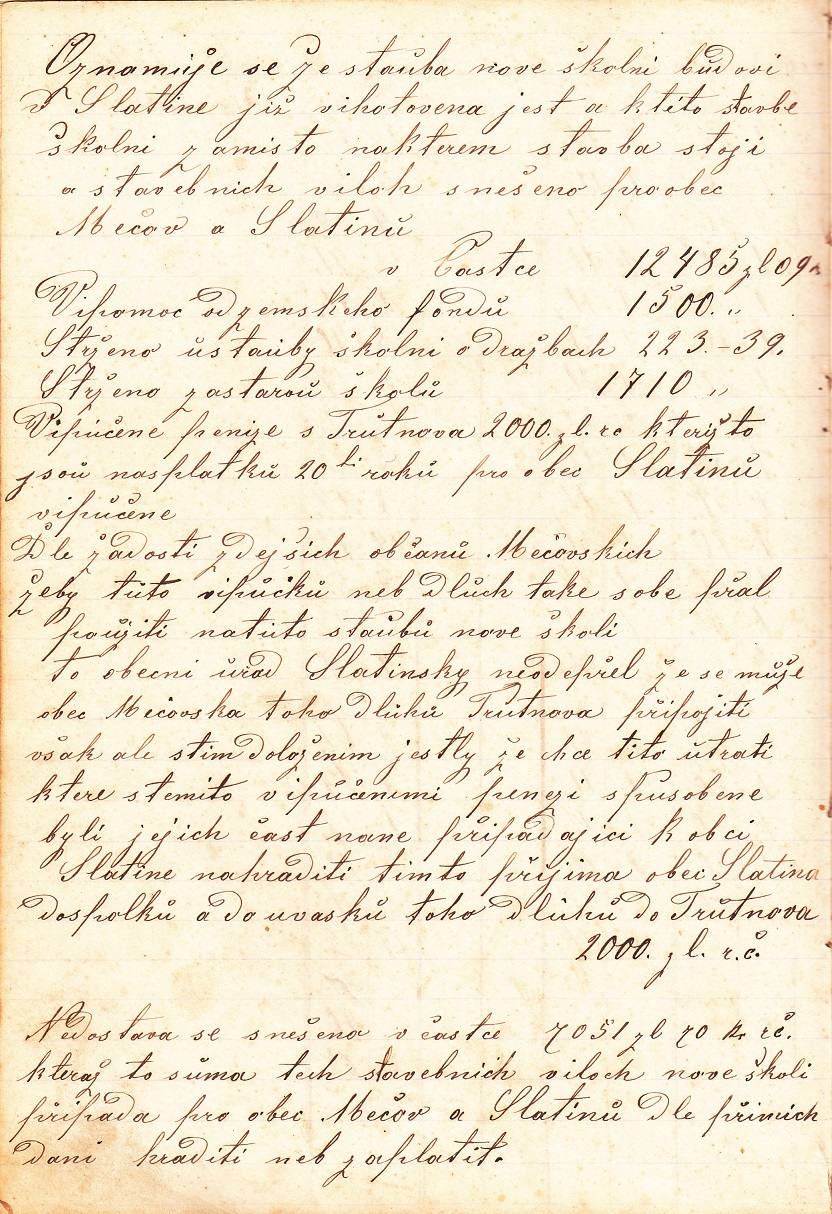 Oznamuje se že stauba nove školni budovi
v Slatine již vihotovena jest a k této stavbe
školni za misto nakterem stavba stoji
a stavebnich viloh snešeno pro obec
Mečov a Slatinu
v Častce 12485 zl 09
Vipomoc od zemskeho fondu 1500. „
Strženo ustauby školni o dražbach 223.-39.
Strženo zastarou školu 1710 „
Vipučene penize s Trutnova 2000. zl. rc kteryž to
jsou nasplatku 20ti roku pro obec Slatinu
vipučene
Dle žadosti zdejšich občanu Mečovskich
žeby tuto vipučku neb dluch take sobe přal
použiti natuto staubu nove školi
to obecni uřad Slatinsky neodepřel že se muže
obec Mečovska toho dluhu Trutnova připojiti
však ale stim doloženim jestly že chce tito utrati
ktere stemito vipučenimi penezi spusobene
byli jejich čast nane připadajici k obci
Slatine nahraditi timto přijima obec Slatina
dospolku a do uvasku toho dluhu do Trutnova
2000. zl. r.č.
Nedostava se snešena v častce 7051 zl 70 kr rč.
kteraž to suma tech stavebnich viloch nove školi
připada pro obec Mečov a Slatinu dle přimich
dani hraditi neb zaplatit.